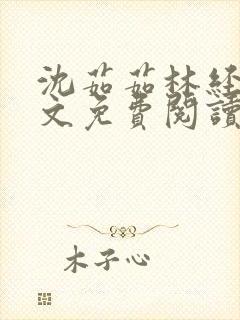 沈茹茹林经
文免費閱讀
木子心